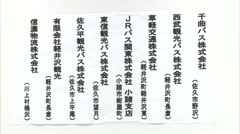 千曲バス株式会社
（佐久市野沢）
西武観光バス株式会社
（軽井沢町長倉）
草軽交通株式会社
（軽井沢町長倉）
ＪＲバス関東株式会社 小諸支店
（小諸市御影町）
東信観光バス株式会社
（佐久市望月）
佐久平観光バス株式会社
（佐久市上平尾）
有限会社軽井沢観光
（軽井沢町長倉）
信濃物流株式会社
（川上村樋沢）